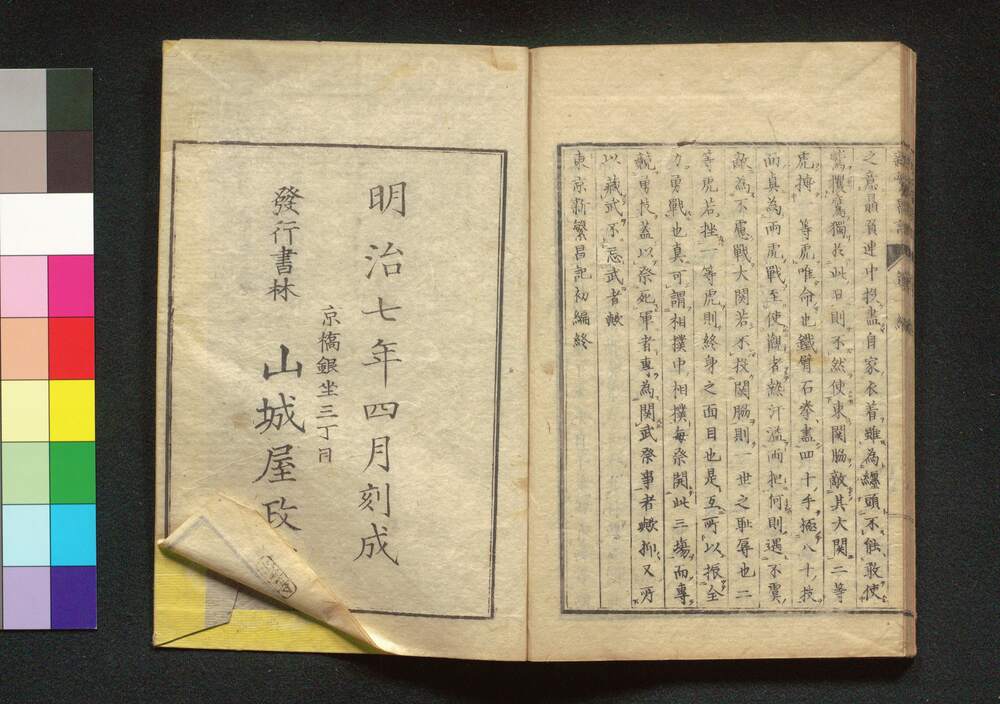 之意晶頁連中投盡自家衣着雖為纏頭不能敢使
鷲攫鳶獨於此日則不然使東関脇敵其大関二等
虎搏一等虎唯命也鐵臂石拳盡四十手極八十技
而真為両虎戰至使觀者熱汗溢両把何則遇不翼
敵為不慮戰大関若不投関脇則一世之耻辱也二
等虎若挫一等虎則終身之面目也是互所以振全
力勇戰也真可謂相撲中相撲每祭開此三場而專
競勇技蓋以祭死軍者專為関武祭事者歟抑又所
以藏武不忘武者歟
東京新繁昌記初編終
明治七年四月刻成
京橋銀坐三丁目
發行書林 山城屋政